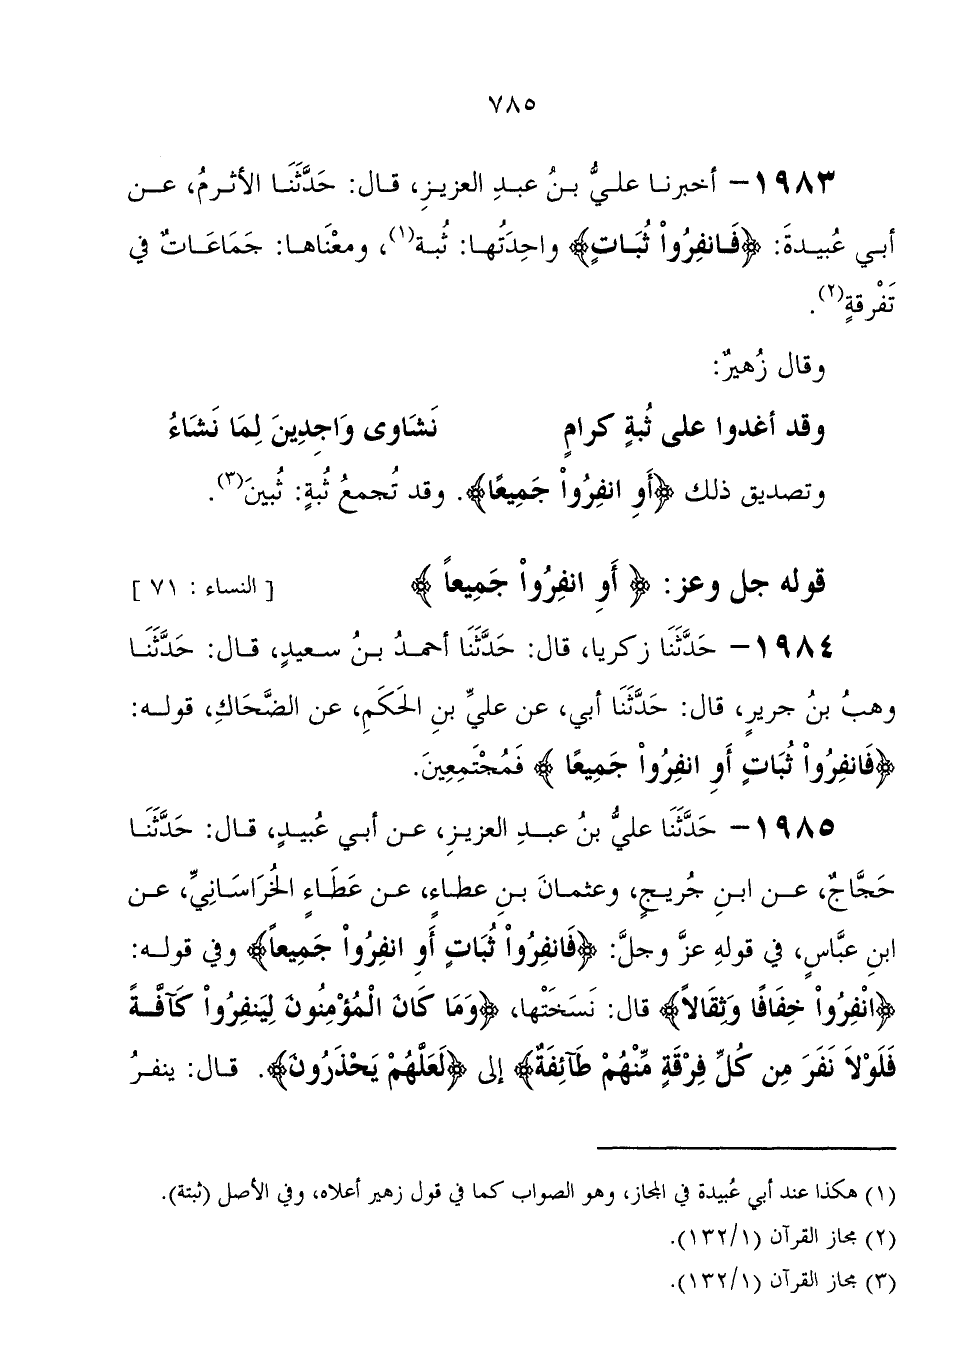 ٧٨٥
١٩٨٣ – أخبرنا عليُّ بنُ عبدِ العزيزِ، قال: حَدَّثَنَا الأثرمُ، عن
أبي عُبيدةَ: ﴿فَانفِرُواْ ثُبَاتٍ﴾ واحِدَتُها: ثُبة(١)، ومعْنَاها: جَمَاعَاتٌ في
تَفْرقةٍ(٢).
وقال زُهيرٌ:
وقد أغدوا على ثُبةٍ كرامٍ نَشاوى وَاجِدِينَ لِمَا نَشَاءُ
وتصديق ذلك ﴿أَوِ انفِرُواْ جَمِيعًا﴾. وقد تُجمعُ ثُبةٍ: ثُبينَ(٣).
قوله جل وعز: ﴿ أَوِ انفِرُواْ جَمِيعاً ﴾ [ النساء : ٧١ ]
١٩٨٤ – حَدَّثَنَا زكريا، قال: حَدَّثَنَا أحمدُ بنُ سعيدٍ، قال: حَدَّثَنَا
وهبُ بنُ جريرٍ، قال: حَدَّثَنَا أبي، عن عليِّ بنِ الحَكَمِ، عن الضَّحَاكِ، قوله:
﴿فَانفِرُواْ ثُبَاتٍ أَوِ انفِرُواْ جَمِيعًا ﴾ فَمُجْتَمِعِينَ.
١٩٨٥ – حَدَّثَنَا عليُّ بنُ عبدِ العزيزِ، عن أبي عُبيدٍ، قال: حَدَّثَنَا
حَجَّاجٌ، عن ابنِ جُريجٍ، وعثمانَ بنِ عطاءٍ، عن عَطَاءٍ الخُرَاسَانِيِّ، عن
ابنِ عبَّاسٍ، في قولهِ عزَّ وجلَّ: ﴿فَانفِرُواْ ثُبَاتٍ أَوِ انفِرُواْ جَمِيعاً﴾ وفي قوله:
﴿انْفِرُواْ خِفَافًا وَثِقَالاً﴾ قال: نَسَخَتْها، ﴿وَمَا كَانَ الْمُؤْمِنُونَ لِيَنفِرُواْ كَآفَّةً
فَلَوْلاَ نَفَرَ مِن كُلِّ فِرْقَةٍ مِّنْهُمْ طَآئِفَةٌ﴾ إلى ﴿لَعَلَّهُمْ يَحْذَرُونَ﴾. قال: ينفرُ
(١) هكذا عند أبي عُبيدة في المجاز، وهو الصواب كما في قول زهير أعلاه، وفي الأصل (ثبتة).
(٢) مجاز القرآن (١٣٢/١).
(٣) مجاز القرآن (١٣٢/١).